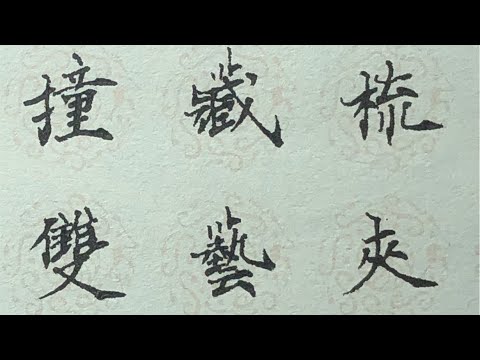 撞藏梳
雙藝夾